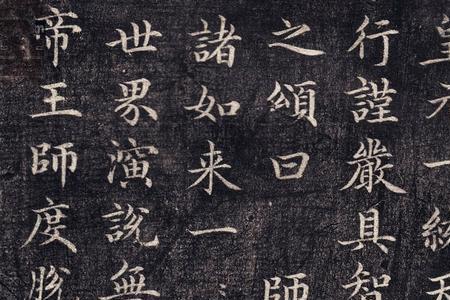 皇元一統天
行謹嚴具智
之頌曰　師
諸如来一
世界演說無
帝王師度脫